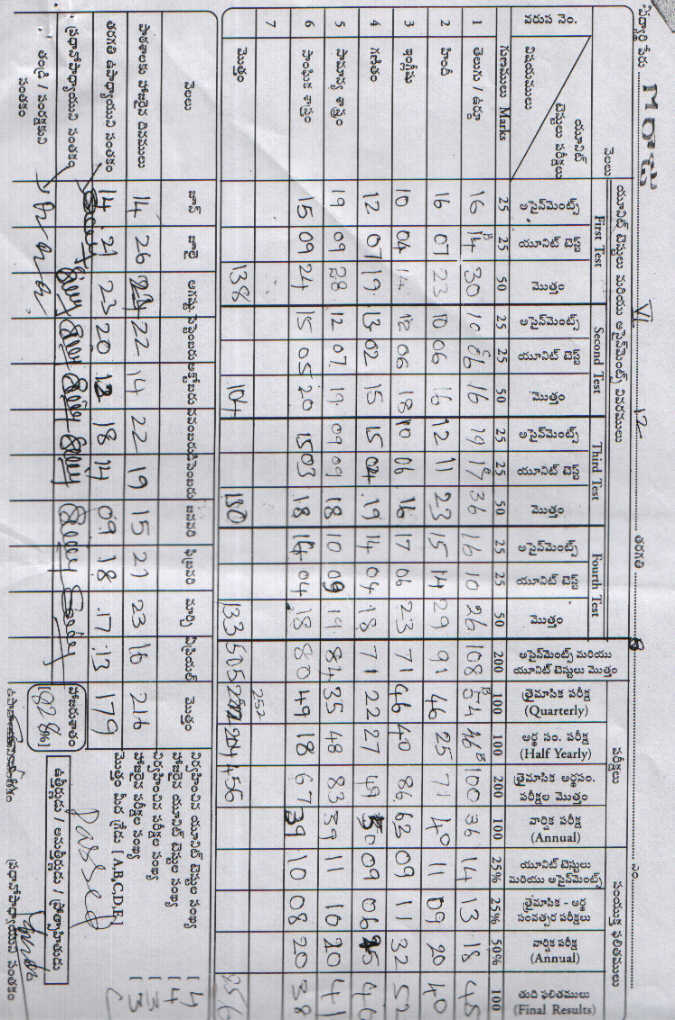 విద్యార్థి పేరు
తరగతి VI
నెలలు
యూనిట్ టెస్టులు మరియు అసైన్‌మెంట్స్ వివరములు
పరీక్షలు
సంయుక్త ఫలితములు
యూనిట్ టెస్టులు పరీక్షలు
First Test
Second Test
Third Test
Fourth Test
వరుస నెం.
విషయములు
అసైన్‌మెంట్స్
యూనిట్ టెస్ట్
మొత్తం
అసైన్‌మెంట్స్
యూనిట్ టెస్ట్
మొత్తం
అసైన్‌మెంట్స్
యూనిట్ టెస్ట్
మొత్తం
అసైన్‌మెంట్స్
యూనిట్ టెస్ట్
మొత్తం
అసైన్‌మెంట్స్ మరియు యూనిట్ టెస్టుల మొత్తం
త్రైమాసిక పరీక్ష (Quarterly)
అర్ధ సం. పరీక్ష (Half Yearly)
త్రైమాసిక అర్ధసం. పరీక్షల మొత్తం
వార్షిక పరీక్ష (Annual)
యూనిట్ టెస్టులు మరియు అసైన్‌మెంట్స్
త్రైమాసిక - అర్ధ సంవత్సర పరీక్షలు
వార్షిక పరీక్ష (Annual)
తుది ఫలితములు (Final Results)
గుణములు Marks 25 25 50 25 25 50 25 25 50 25 25 50 200 100 100 200 100 25% 25% 50% 100
1 తెలుగు / ఉర్దూ 16 14 30 10 06 16 19 17 36 16 10 26 108 54 46 100 36 14 13 18 45
2 హిందీ 16 07 23 10 06 16 12 11 23 15 14 29 91 46 25 71 40 11 09 20 40
3 ఇంగ్లీషు 10 04 14 12 06 18 10 06 16 17 06 23 71 46 40 86 63 09 11 32 52
4 గణితం 12 07 19 13 02 15 15 04 19 14 04 18 71 22 27 49 50 09 06 25 40
5 సామాన్య శాస్త్రం 19 09 28 12 07 19 09 09 18 10 09 19 84 35 48 83 39 11 10 20 41
6 సాంఘిక శాస్త్రం 15 09 24 15 05 20 15 03 18 14 04 18 80 49 18 67 39 10 08 20 38
7
మొత్తం 138 104 130 133 505 252 204 456 256
252
నెలలు జూన్ జూలై ఆగష్టు సెప్టెంబరు అక్టోబరు నవంబరు డిసెంబరు జనవరి ఫిబ్రవరి మార్చి ఏప్రియల్ మొత్తం
పాఠశాలకు హాజరైన దినములు 14 26 24 22 14 22 19 15 21 23 16 216
14 21 23 20 12 18 14 09 18 17 13 179
తరగతి ఉపాధ్యాయుని సంతకం
ప్రధానోపాధ్యాయుని సంతకం
తండ్రి / సంరక్షకుని సంతకం
హాజరుశాతం
[82.8%]
నిర్వహించిన యూనిట్ టెస్టుల సంఖ్య [ 4
హాజరైన యూనిట్ టెస్టుల సంఖ్య [ 4
నిర్వహించిన పరీక్షల సంఖ్య [ 3
హాజరైన పరీక్షల సంఖ్య [ 3
మొత్తం మీద గ్రేడు [ A,B,C,D,E ] C
ఉత్తీర్ణుడు / అనుత్తీర్ణుడు / ప్రోత్సాహితుడు
Passed
ప్రధానోపాధ్యాయుని సంతకం